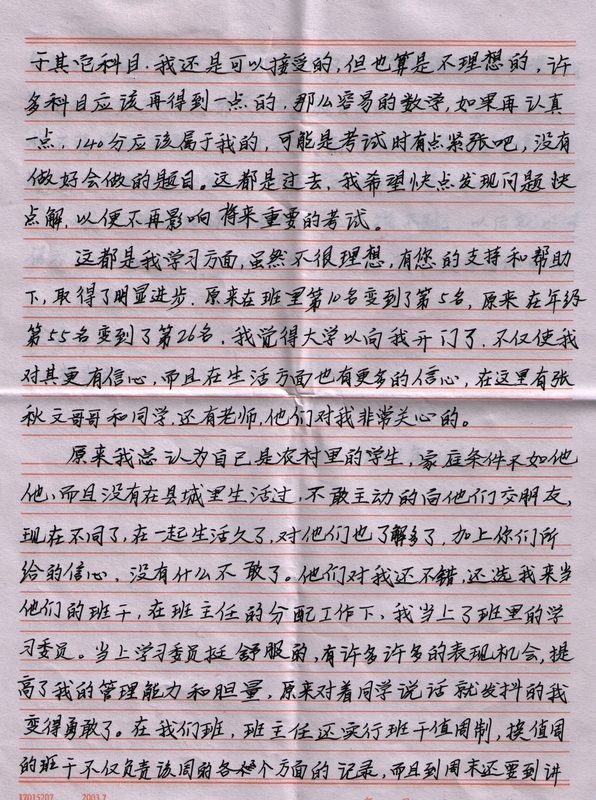 于其它科目.我还是可以接受的,但也算是不理想的,许
多科目应该再得到一点的.那么容易的数学,如果再认真
一点,140分应该属于我的,可能是考试时有点紧张吧,没有
做好会做的题目。这都是过去,我希望快点发现问题快
点解,以便不再影响将来重要的考试。
这都是我学习方面,虽然不很理想,有您的支持和帮助
下,取得了明显进步.原来在班里第10名变到了第5名,原来在年级
第55名变到了第26名,我觉得大学以向我开门了.不仅使我
对其更有信心,而且在生活方面也有更多的信心,在这里有张
秋文哥哥和同学,还有老师,他们对我非常关心的。
原来我总认为自己是农村里的学生,家庭条件不如他
他,而且没有在县城里生活过,不敢主动的向他们交朋友,
现在不同了,在一起生活久了,对他们也了解多了,加上你们所
给的信心,没有什么不敢了。他们对我还不错,还选我来当
他们的班干,在班主任的分配工作下,我当上了班里的学
习委员。当上学习委员挺舒服的,有许多许多的表现机会,提
高了我的管理能力和胆量,原来对着同学说话就发抖的我
变得勇敢了。在我们班,班主任还实行班干值周制,挨值周
的班干不仅负责该周的各个方面的记录,而且到周末还要到讲
17015207 2003.7